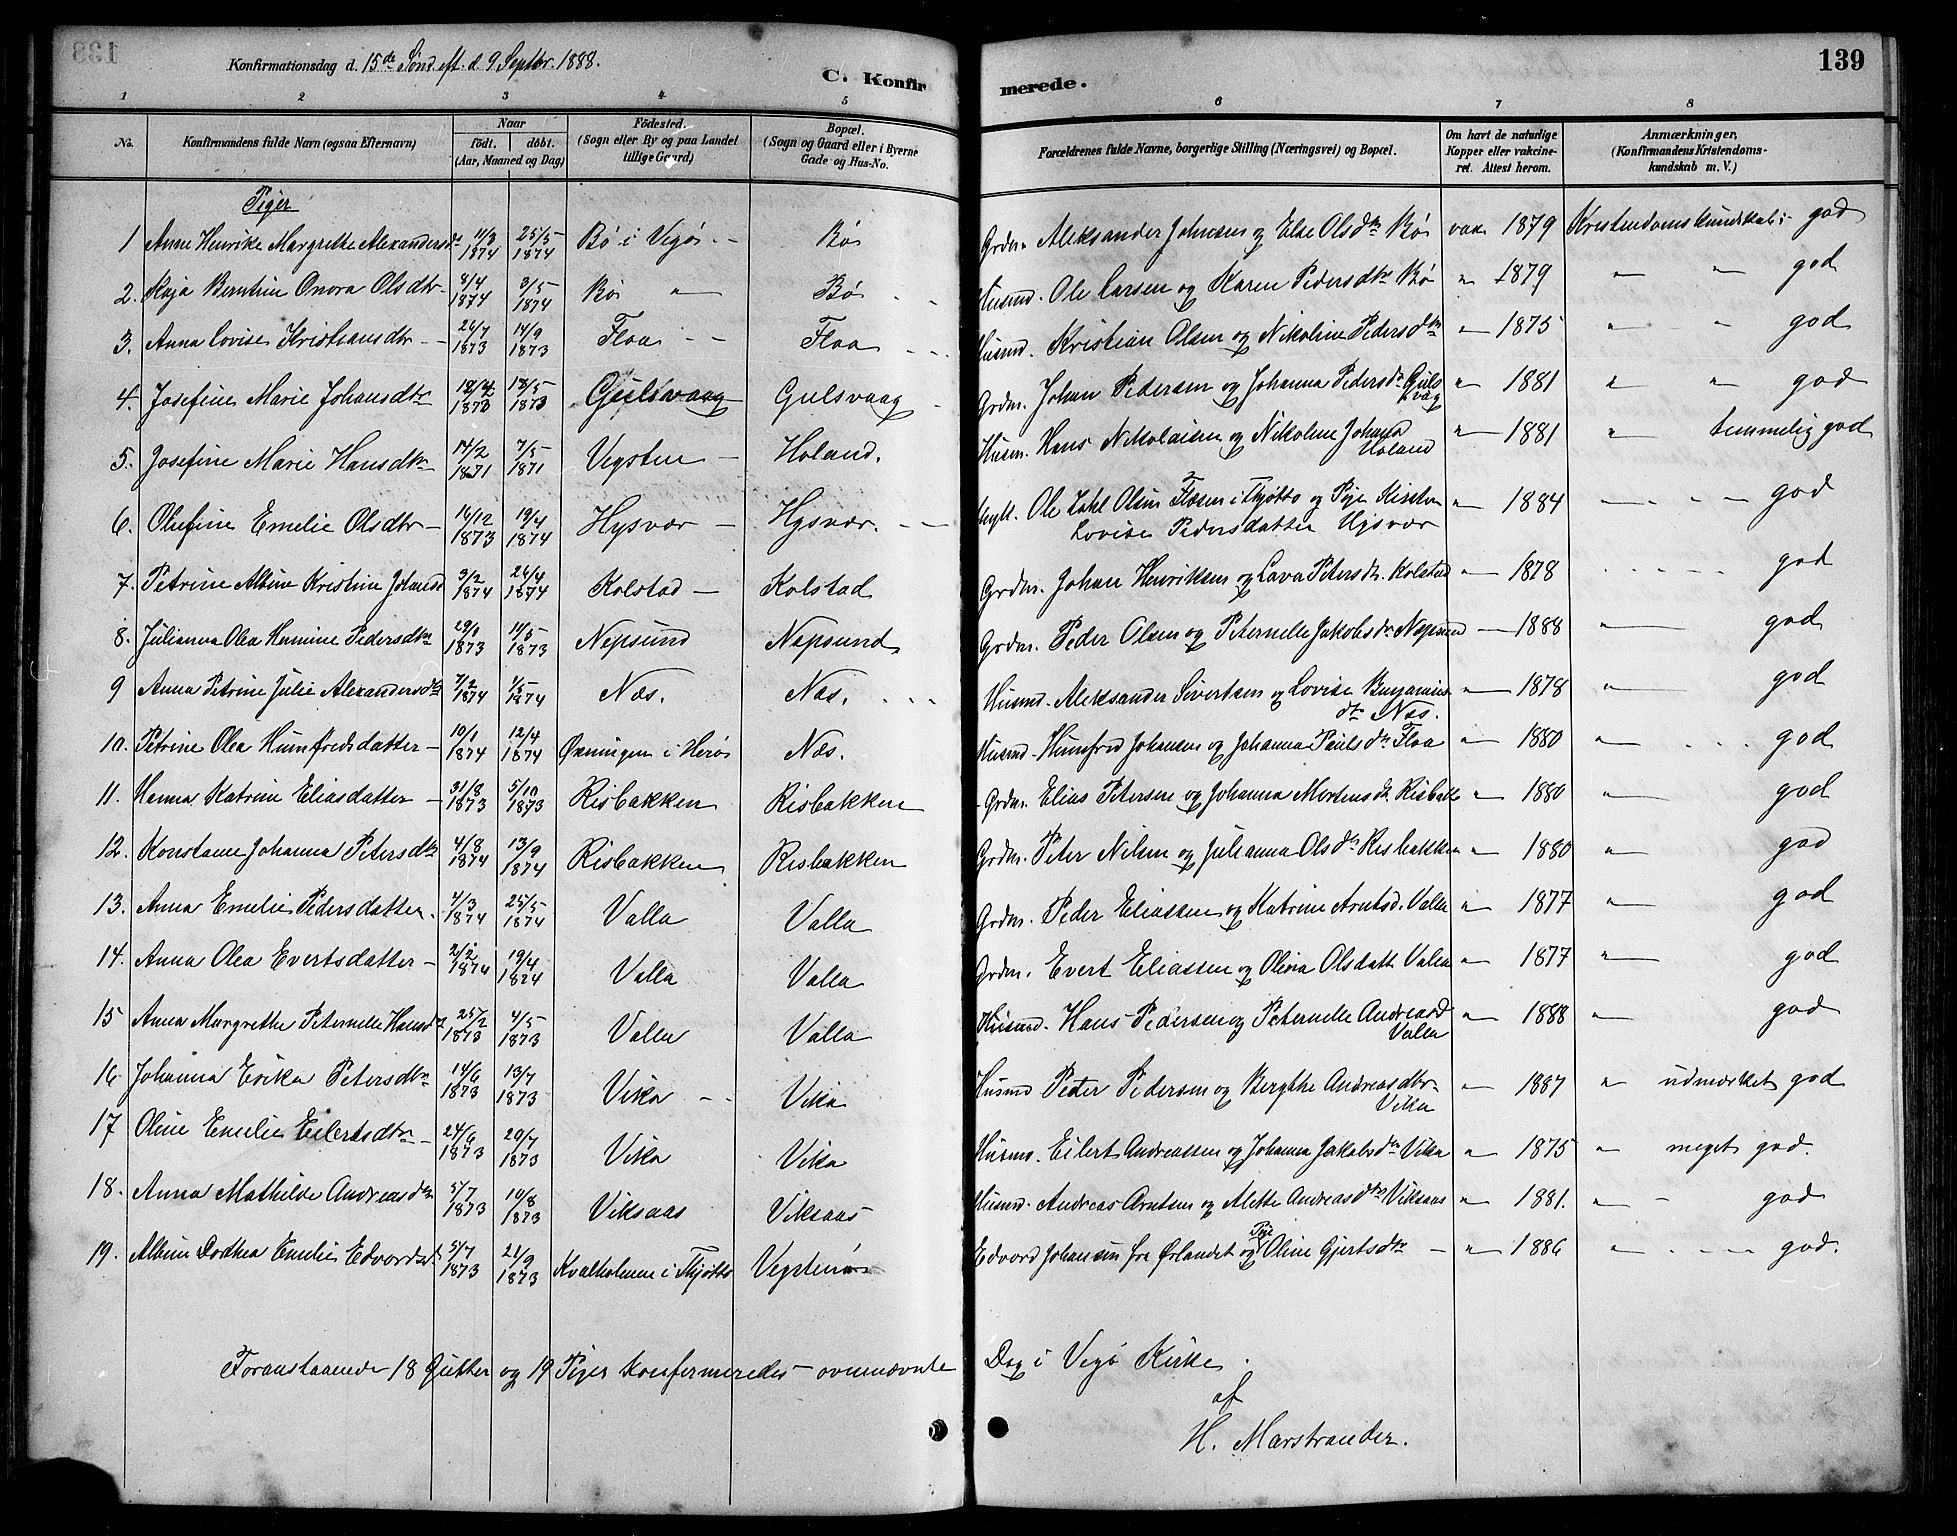 Konfirmationsdag d. 15de Sönd. eft. d. 9 Septbr. 1888.
C. Konfirmerede.
139
1 2 3 4 5 6 7 8
No.
Konfirmandens fulde Navn (ogsaa Efternavn)
Naar
født. døbt.
(Aar, Maaned og Dag)
Fødested.
(Sogn eller By og paa Landet
tillige Gaard)
Bopæl.
(Sogn og Gaard eller i Byerne
Gade og Hus-No.
Forældrenes fulde Navne, borgerlige Stilling (Næringsvei) og Bopæl.
Om havt de naturlige
Kopper eller vakcine-
ret. Attest herom.
Anmærkninger.
(Konfirmandens Kristendoms-
kundskab m. V.)
Piger
1 Anne Henrike Margrethe Alexandersdtr 11/3 1874 25/5 1874 Bö i Vegö Bö Grdm. Aleksander Johnsen og Else Olsdtr Bö vac 1879 Kristendomskundskab: god
2. Kaja Berntine Onora Olsdtr 8/4 1874 3/5 1874 Bö " Bö Husmd. Ole Larsen og Karen Pedersdtr Bö " 1879 " " god
3. Anna Lovise Kristiansdtr 26/7 1873 14/9 1873 Floa Floa Husmd. Kristian Olsen og Nikoline Pedersdtr " 1875 " " god
4. Josefine Marie Johansdtr 1873 18/5 1873 Gulsvaag Gulsvaag Grdm. Johan Pedersen og Johanna Pedersdtr Gulsvaag " 1881 " " god
5. Josefine Marie Hansdtr 14/2 1871 7/5 1871 Vegsten Holand. Husm. Hans Nikolaisen og Nikoline Johans Holand " 1881 " temmelig god
6. Olufine Emelie Olsdtr 16/12 1873 19/4 1874 Hysvær Hysvær. Ole Olsen Flæsen i Thjøtto og Pige Kirsten
Lovise Pedersdatter Hysvær " 1884 god
7. Petrine Albine Kristine Johansd 3/2 1874 26/4 1874 Kolstad Kolstad Grdm. Johan Henriksen og Lava Petersdtr. Kolstad " 1878 god
8. Julianna Olea Hermine Pedersdtr 29/1 1873 11/5 1873 Nepsund Nepsund Grdm. Peder Olsen og Peternelle Jakobsdtr Nepsund 1888 " god
9 Anna Petrine Julie Alexandersdtr 7/2 1874 1/5 1874 Næs. Næs. Husmd. Aleksander Sivertsen og Lovise Benjamins
dtr Næs. " 1878 " god
10. Petrine Olea Humfredsdatter 10/1 1874 12/4 1874 Øxningen i Herö Næs. Husmd. Humfred Johansen og Johanna Paulsdtr Floa " 1880 " god
11. Hanna Katrine Eliasdatter 31/8 1873 5/10 1873 Risbakken Risbakken Grdm. Elias Petersen og Johanna Mortensdtr Risbakk " 1880 " god
12. Konstanse Johanna Petersdtr 4/8 1874 13/9 1874 Risbakken Risbakken Grdm. Peter Nilsen og Julianna Olsdtr Risbakken " 1880 " god
13. Anna Emelie Pedersdatter. 4/3 1874 25/5 1874 Valla Valla Grdm. Peder Eliassen og Katrine Arntsd. Valla " 1877 " god
14. Anna Olea Evertsdatter 2/2 1874 19/4 1874 Valla Valla Grdm. Evert Eliassen og Olina Olsdatt Valla " 1877 " god
15 Anna Margrethe Peternelle Hansdtr 25/2 1873 4/5 1873 Valla Valla Husmd. Hans Pedersen og Peternelle Andreasd
Valla " 1888 " god
16. Johanna Erika Petersdtr 14/6 1873 13/7 1873 Vika Vika Husmd Peter Pedersen og Bergthe Andreasdtr.
Vika " 1887 " udmærket god
17 Oline Emelie Eilertsdtr 24/6 1873 20/7 1873 Vika Vika Husmd. Eilert Andreassen og Johanna Jakobsdtr Vika " 1875 " meget god.
18. Anna Mathilde Andreasdtr 5/7 1873 10/8 1873 Viksaas Viksaas Husmd. Andreas Arntsen og Alette Andreasdtr Viksaas " 1881. " god
19. Albine Dorthea Emelie Edvardsd. 5/7 1873 21/9 1873 Kvalholmen i Thjøtto Vegstenö Edvard Johansen fra Ørlandet og Pige Oline Gjertsdtr " 1886 " god.
Foranstaaende 18 Gutter og 19 Piger konfirmeredes ovennævnte Dag i Vegö Kirke
af
H. Marstrander.